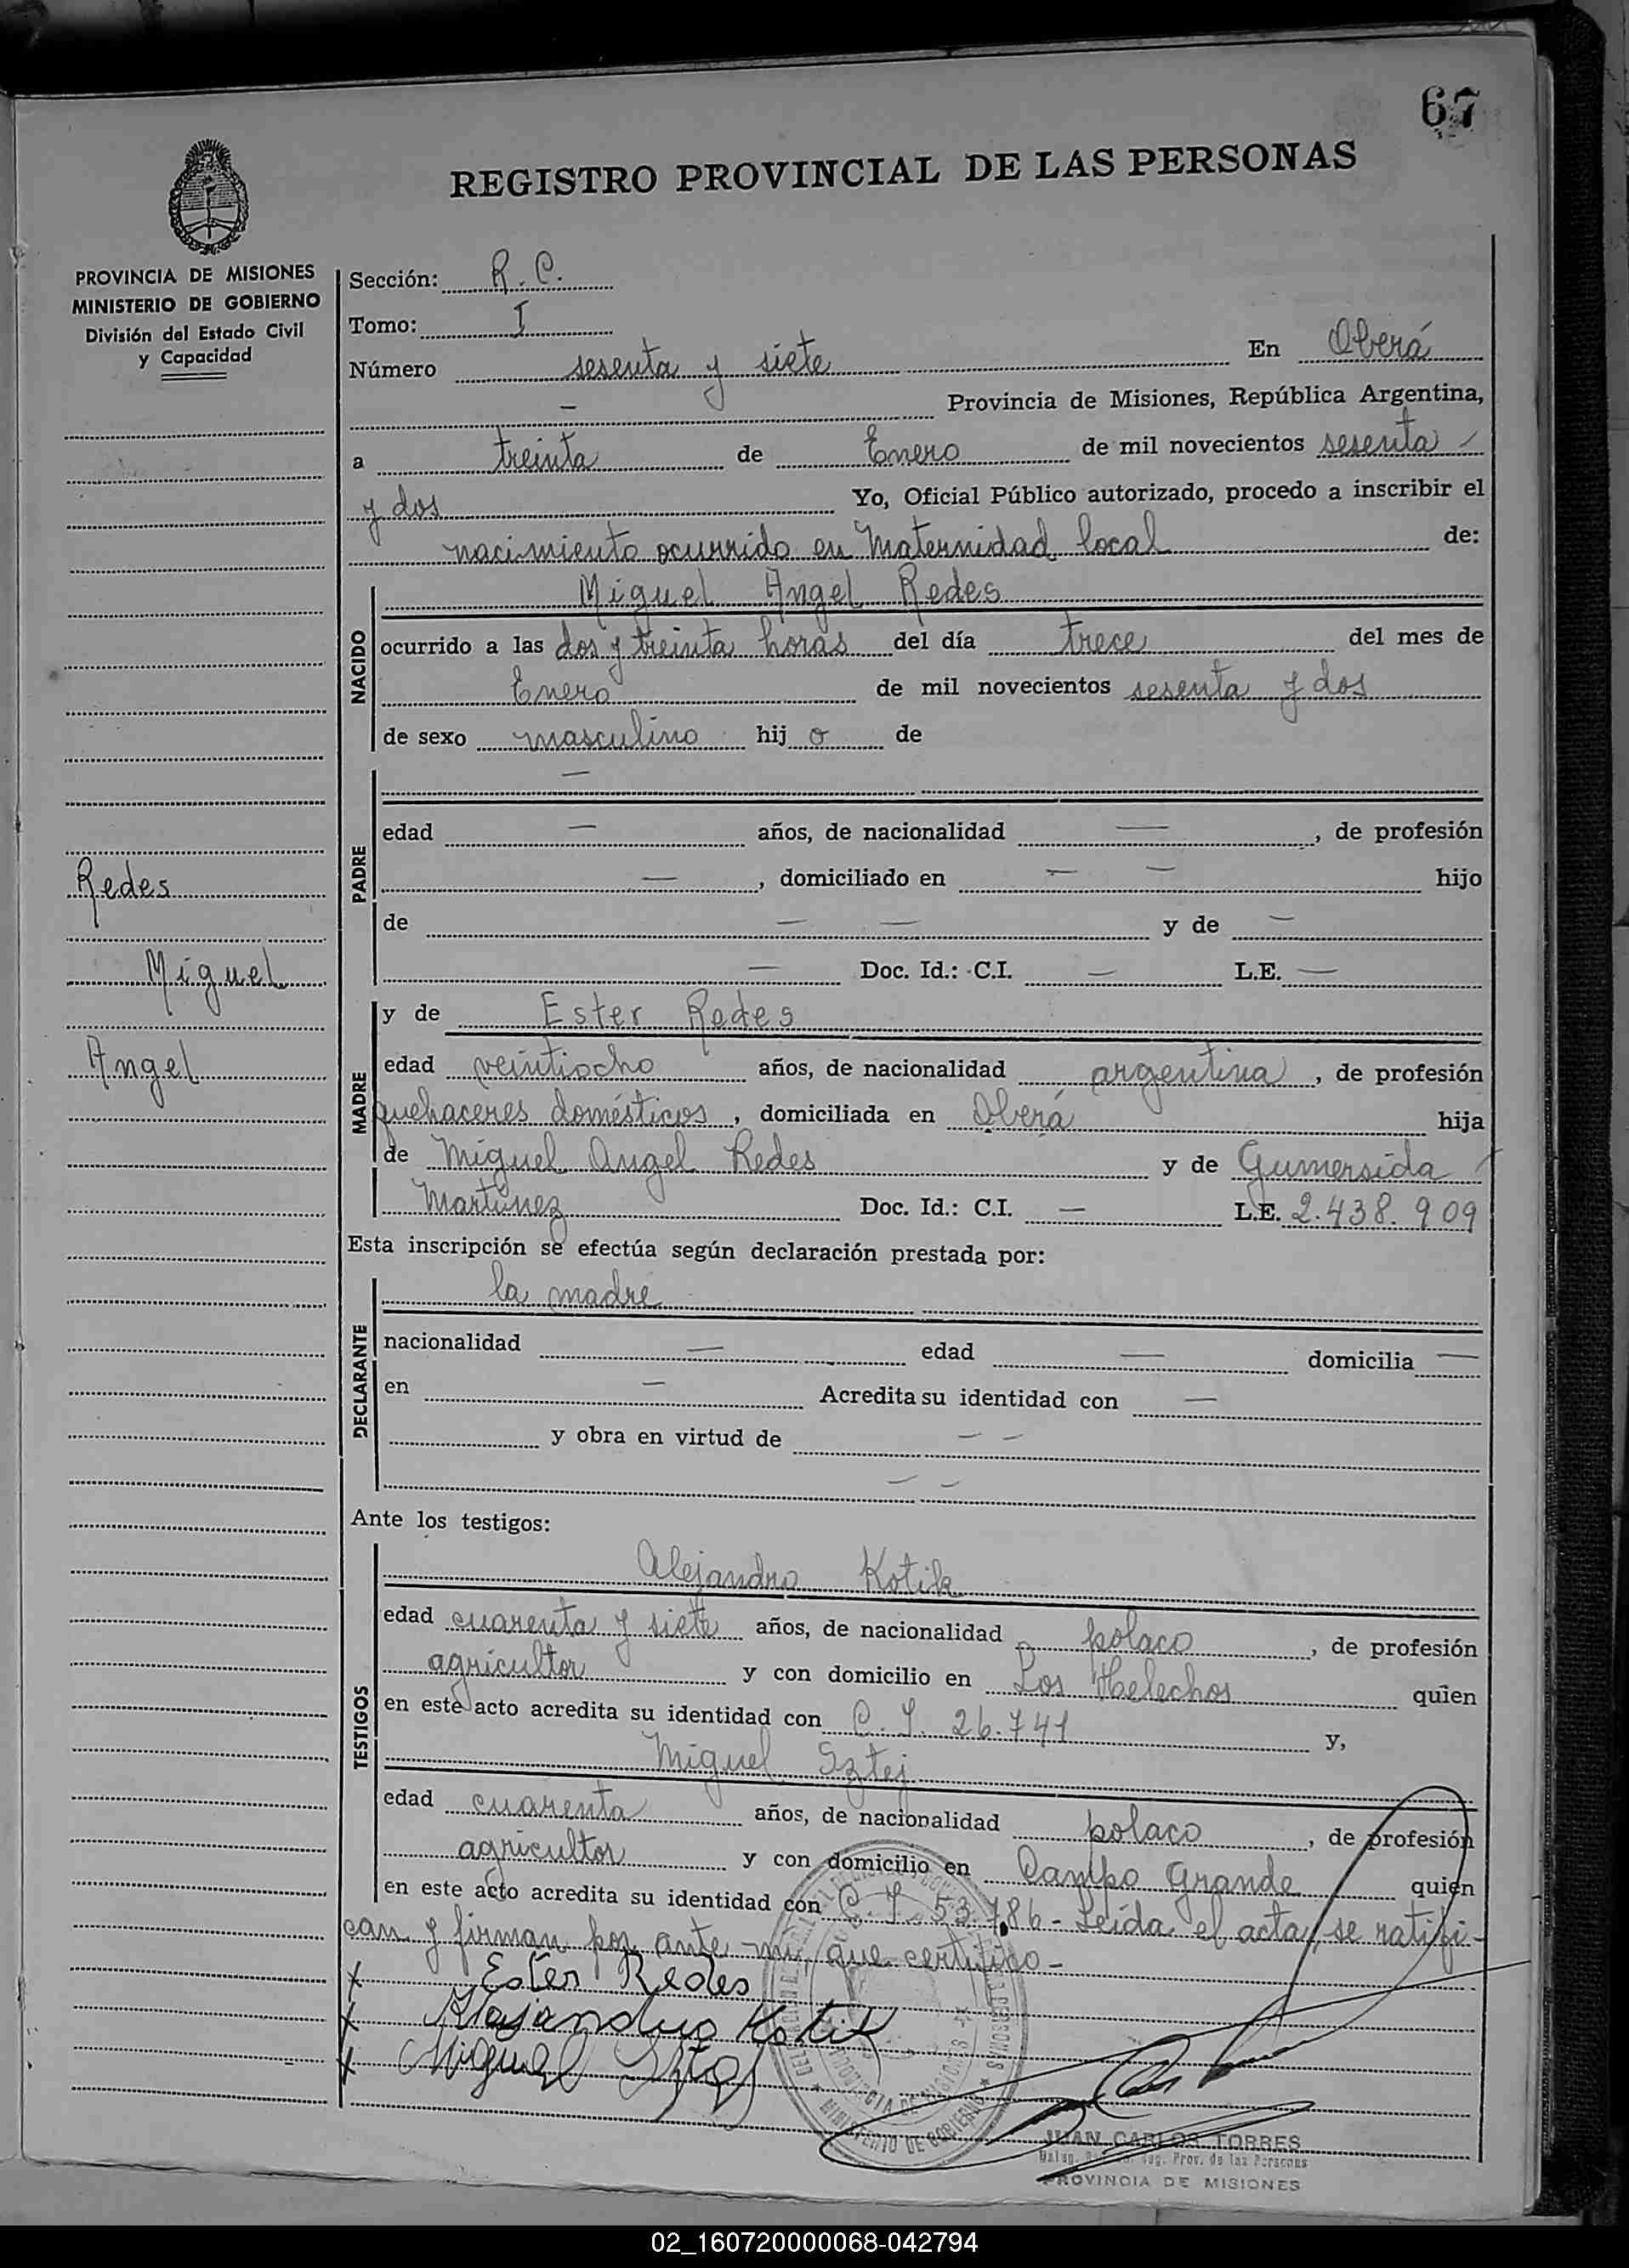 67
REGISTRO PROVINCIAL DE LAS PERSONAS
PROVINCIA DE MISIONES
MINISTERIO DE GOBIERNO
División del Estado Civil
y Capacidad
Redes
Miguel
Angel
Sección: R. C.
Tomo: I
Número sesenta y siete En Oberá
— Provincia de Misiones, República Argentina,
a treinta de Enero de mil novecientos sesenta
y dos Yo, Oficial Público autorizado, procedo a inscribir el
nacimiento ocurrido en Maternidad local de:
NACIDO
Miguel Angel Redes
ocurrido a las dos y treinta horas del día trece del mes de
Enero de mil novecientos sesenta y dos
de sexo masculino hij o de
PADRE
—
edad — años, de nacionalidad — , de profesión
— , domiciliado en — — hijo
de — — y de —
— Doc. Id.: C.I. — L.E. —
MADRE
y de Ester Redes
edad veintiocho años, de nacionalidad argentina , de profesión
quehaceres domésticos , domiciliada en Oberá hija
de Miguel Angel Redes y de Gumersida
Martínez Doc. Id.: C.I. — L.E. 2.438.909
Esta inscripción se efectúa según declaración prestada por:
DECLARANTE
la madre
nacionalidad — edad — domicilia —
en — Acredita su identidad con —
y obra en virtud de — —
— —
Ante los testigos:
TESTIGOS
Alejandro Kotik
edad cuarenta y siete años, de nacionalidad polaco , de profesión
agricultor y con domicilio en Los Helechos quien
en este acto acredita su identidad con C. I. 26.741 y,
Miguel Sztej
edad cuarenta años, de nacionalidad polaco , de profesión
agricultor y con domicilio en Campo Grande quien
en este acto acredita su identidad con C. I. 53.786 - Leída el acta, se ratifi-
can y firman por ante mi, que certifico-
x Ester Redes
x Alejandro Kotik
x Miguel Sztej
MINISTERIO DE GOBIERNO
PROVINCIA DE MISIONES
JUAN CARLOS TORRES
Reg. Prov. de las Personas
PROVINCIA DE MISIONES
02_160720000068-042794